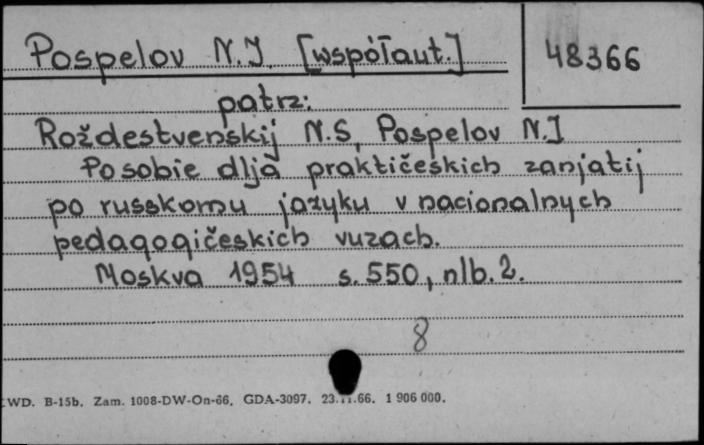 Pospelov N.I. [współaut.]
48366
patrz:
Roždestvenskij N.S, Pospelov N.I
Posobie dlja praktičeskich zanjatij
po russkomu jazyku v nacionalnych
pedagogičeskich vuzach.
Moskva 1954 s. 550, nlb. 2.
8
WD. B-15b. Zam. 1008-DW-On-66. GDA-3097. 23.11.66. 1 906 000.